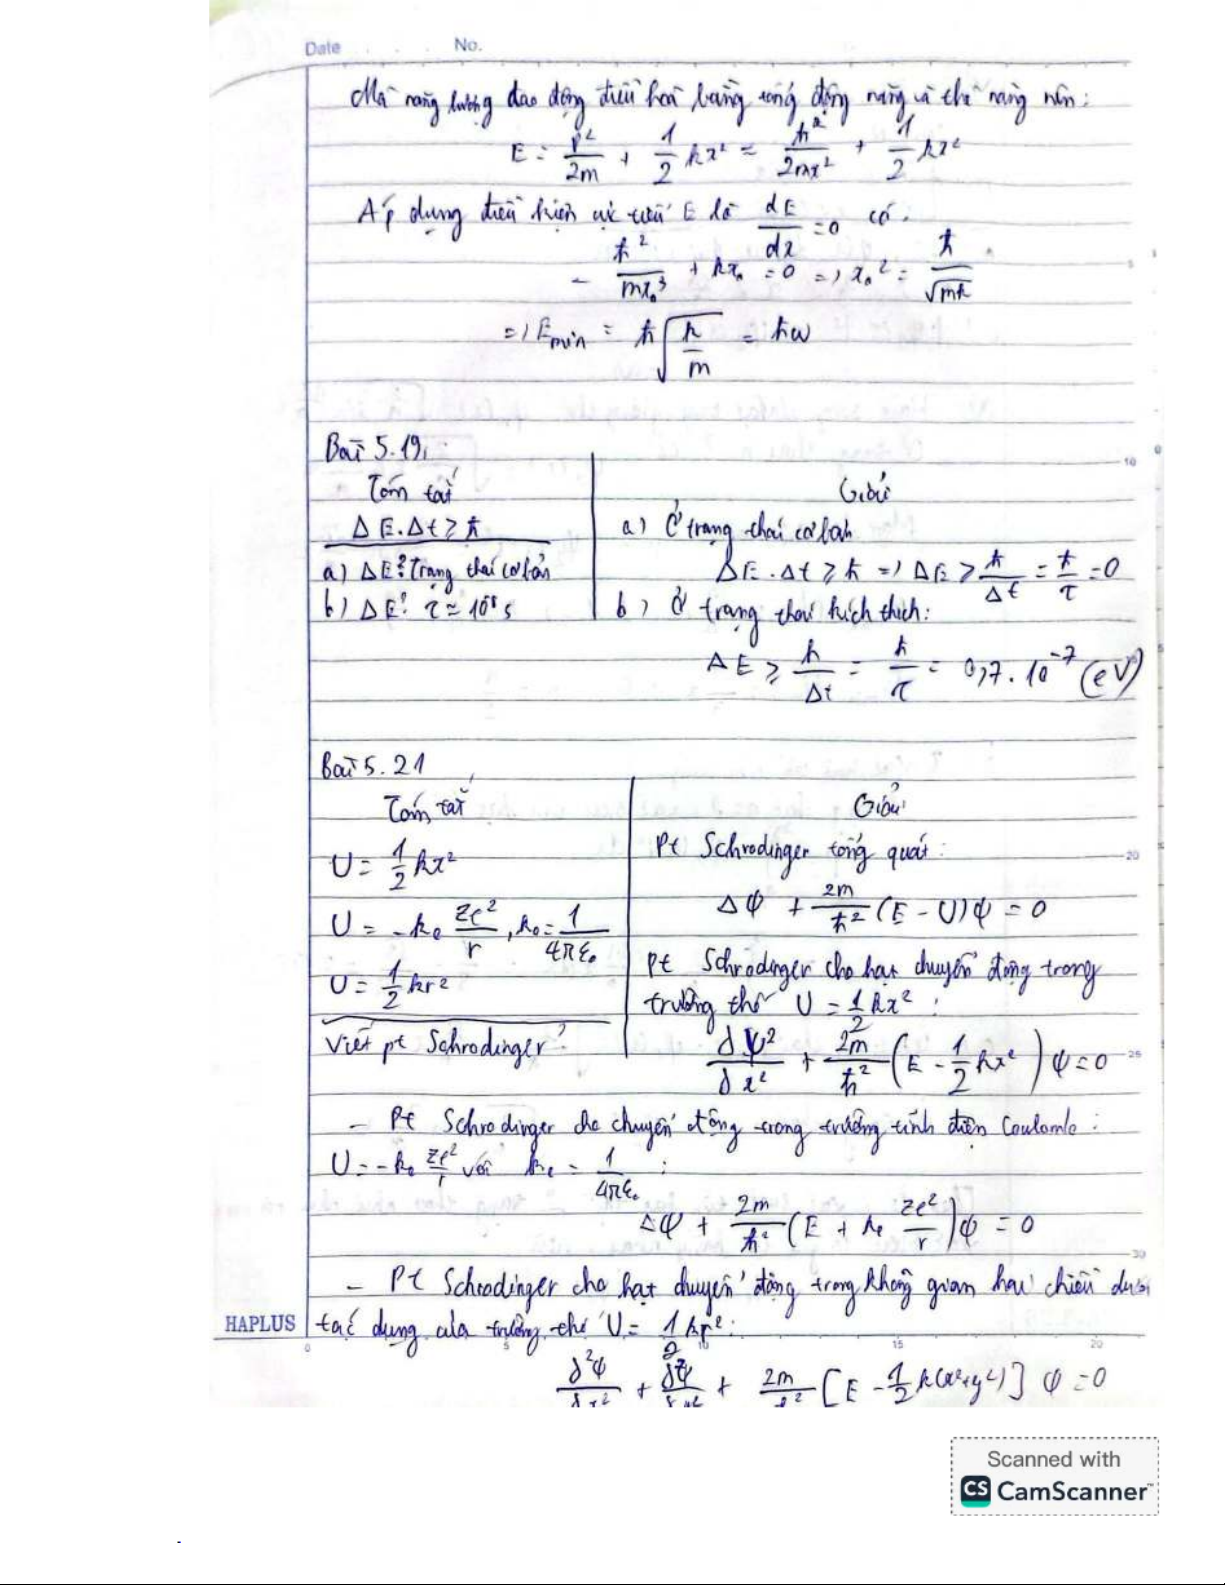 Date No.
Mà năng lượng dao động điều hoà bằng tổng động năng và thế năng nên:
E = p²/2m + 1/2 kx² = ħ²/2mx² + 1/2 kx²
Áp dụng điều kiện cực tiểu E là dE/dx = 0 có:
- ħ²/mx₀³ + kx₀ = 0 => x₀² = ħ/√mk
=> Emin = ħ√(k/m) = ħω
Bài 5.19:
Tóm tắt
ΔE.Δt ≥ ħ
a) ΔE? Trạng thái cơ bản
b) ΔE? τ = 10⁻⁸ s
Giải
a) Ở trạng thái cơ bản
ΔE.Δt ≥ ħ => ΔE ≥ ħ/Δt = ħ/τ = 0
b) Ở trạng thái kích thích:
ΔE ≥ ħ/Δt = ħ/τ = 0,7.10⁻⁷ (eV)
Bài 5.21
Tóm tắt
U = 1/2 kx²
U = -k₀ Ze²/r, k₀ = 1/4πε₀
U = 1/2 kr²
Viết pt Schrodinger?
Giải
Pt Schrodinger tổng quát:
Δψ + 2m/ħ² (E - U)ψ = 0
Pt Schrodinger cho hạt chuyển động trong
trường thế U = 1/2 kx²:
∂ψ²/∂x² + 2m/ħ² (E - 1/2 kx²)ψ = 0
- Pt Schrodinger cho chuyển động trong trường tĩnh điện Coulomb:
U = -k₀ Ze²/r với k₀ = 1/4πε₀ :
Δψ + 2m/ħ² (E + k₀ Ze²/r)ψ = 0
- Pt Schrodinger cho hạt chuyển động trong không gian hai chiều dưới
HAPLUS tác dụng của trường thế U = 1/2 kr²:
0 5 10 15 20
∂²ψ/∂x² + ∂²ψ/∂y² + 2m/ħ² [E - 1/2 k(x²+y²)] ψ = 0
Scanned with
CS CamScanner